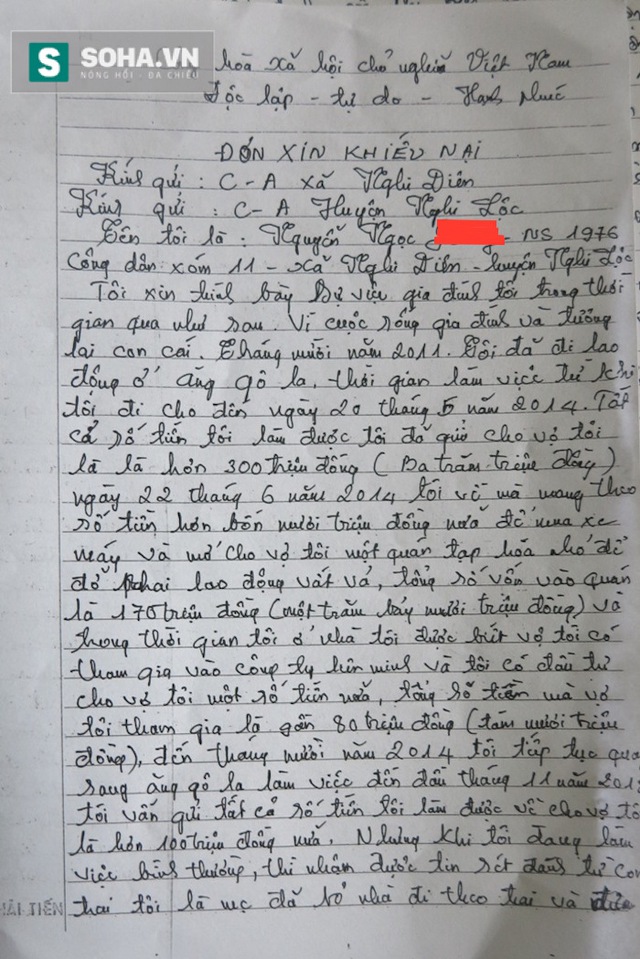 S SOHA.VN
NÓNG HỔI - ĐA CHIỀU
hòa xã hội chủ nghĩa Việt Nam
Độc lập - tự do - Hạnh Phúc
ĐƠN XIN KHIẾU NẠI
Kính gửi : C-A xã Nghi Diên
Kính gửi : C-A Huyện Nghi Lộc
Tên tôi là : Nguyễn Ngọc - NS 1976
Công dân xóm 11 - xã Nghi Diên - huyện Nghi Lộc
Tôi xin trình bày sự việc gia đình tôi trong thời
gian qua như sau. Vì cuộc sống gia đình và tương
lai con cái. Tháng mười năm 2011. Tôi đã đi lao
động ở ăng gô la, thời gian làm việc từ khi
tôi đi cho đến ngày 20 tháng 5 năm 2014. Tất
cả số tiền tôi làm được tôi đã gửi cho vợ tôi
là là hơn 300 triệu đồng (Ba trăm triệu đồng)
ngày 22 tháng 6 năm 2014 tôi về mà mang theo
số tiền hơn bốn mươi triệu đồng nữa để mua xe
máy và mở cho vợ tôi một quán tạp hóa nhỏ để
đỡ phai lao động vất vả, tổng số vốn vào quán
là 170 triệu đồng (một trăm bảy mươi triệu đồng) và
trong thời gian tôi ở nhà tôi được biết vợ tôi có
tham gia vào công ty liên minh và tôi có đầu tư
cho vợ tôi một số tiền nữa, tổng số tiền mà vợ
tôi tham gia là gần 80 triệu đồng (tám mươi triệu
đồng), đến tháng mười năm 2014 tôi tiếp tục qua
sang ăng gô la làm việc đến đầu tháng 11 năm 201
tôi vẫn gửi tất cả số tiền tôi làm được về cho vợ tô
là hơn 100 triệu đồng nữa. Nhưng khi tôi đang làm
việc bình thường, thì nhận được tin sét đánh từ con
trai tôi là mẹ đã bỏ nhà đi theo trai và
HẢI TIẾN